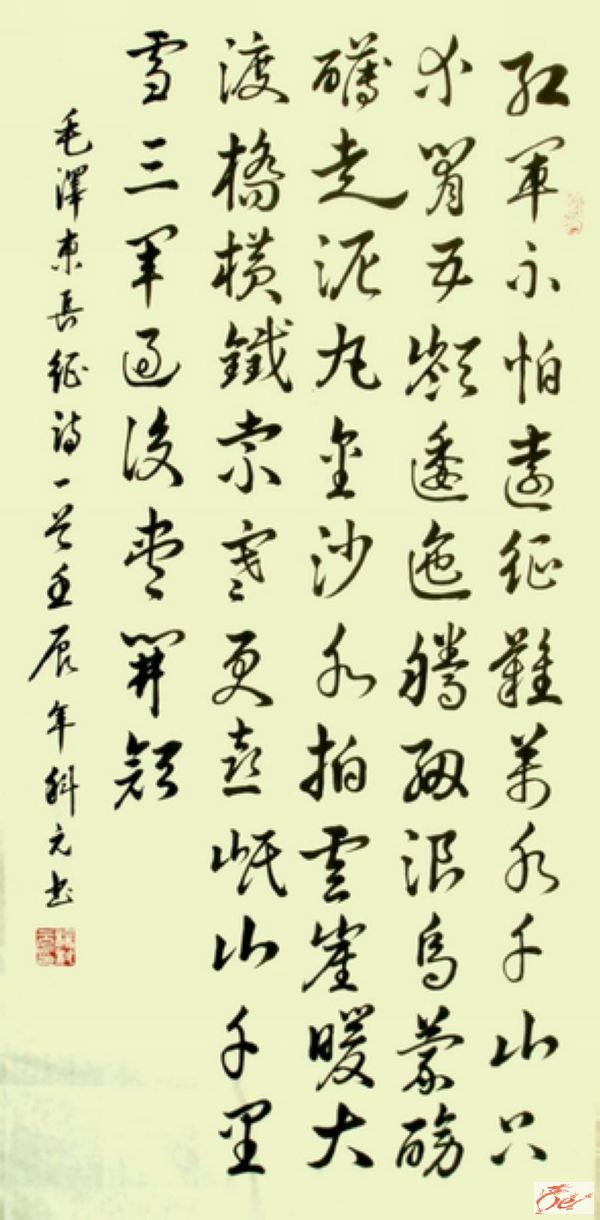 紅軍不怕遠征難萬水千山只
等閒五嶺逶迤騰細浪烏蒙磅
礴走泥丸金沙水拍雲崖暖大
渡橋橫鐵索寒更喜岷山千里
雪三軍過後盡開顏
毛澤東長征詩一首壬辰年科元書